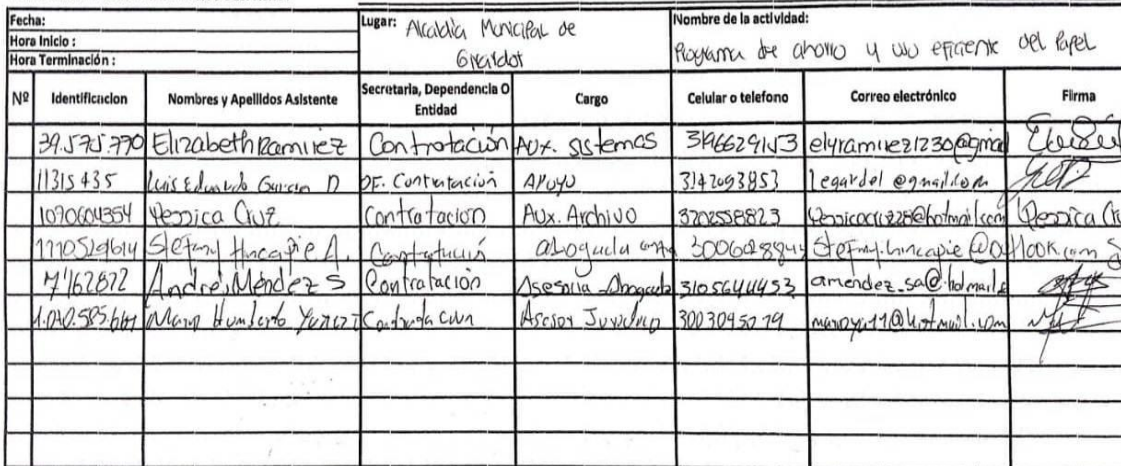 Fecha:
Hora Inicio :
Hora Terminación :
Lugar: Alcaldía Municipal de
Girardot
Nombre de la actividad:
Programa de ahorro y uso eficiente del Papel
Nº Identificacion Nombres y Apellidos Asistente Secretaria, Dependencia O Entidad Cargo Celular o telefono Correo electrónico Firma
39.575.770 Elizabeth Ramirez Contratación Aux. sistemas 3196629153 elyramirez1230@gmail
11315435 Luis Eduardo Garcia D OF. Contratación Apoyo 3142093853 legardel@gmail.com
1070604354 Yessica Cruz Contratacion Aux. Archivo 3202558823 Yessicacruz28@hotmail.com Yessica Cru
1110529614 Stefany Hincapie A. Contratación abogada 3006028844 Stefany.hincapie@outlook.com
71162872 André Méndez S Contratación Asesoria 3105644453 amendez_sa@hotmail
Mario Humberto Contratacion Asesor Juridico 3003045079